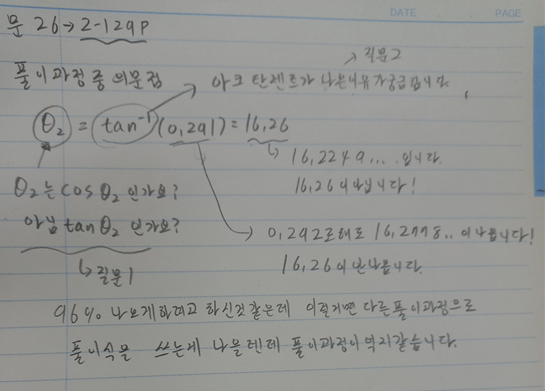 DATE PAGE
문 26→2-129P
풀이과정중 의문점
→ 질문2
아크 탄젠트가 나온이유가궁금합니다.
θ₂ = tan⁻¹(0,291) = 16,26
→ 16,2249... 입니다.
16,26이 아닙니다!
θ₂는 cosθ₂ 인가요?
아님 tanθ₂ 인가요?
→ 0,292로해도 16,2778.. 이 나옵니다!
16,26이 안나옵니다.
↳ 질문1
96% 나오게하려고 하신것같은데 이럴거면 다른풀이과정으로
풀이식을 쓰는게 나을텐데 풀이과정이 억지같습니다.